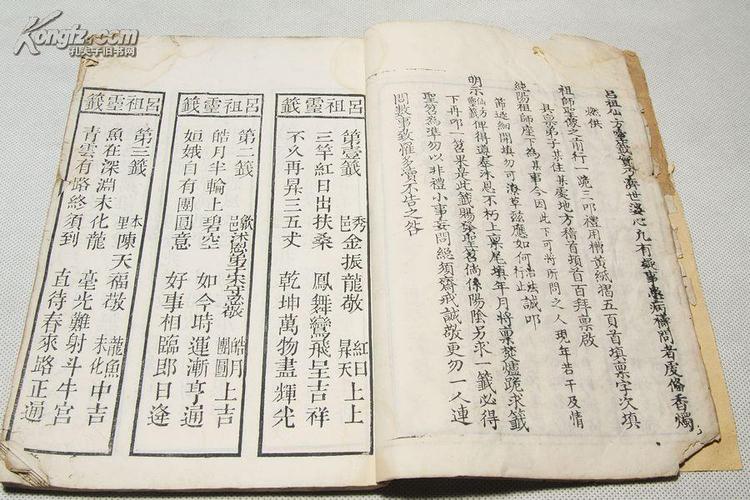 Kongfz.com
孔夫子旧书网
呂祖仙方靈籤實乃濟世婆心凡有事問者度備香燭
燃供
祖師聖像之前行一跪三叩禮用樹黃紙摺五頁首填稟字次填
具稟弟子某住某處地方稽首頓首百拜稟啟
純陽祖師座下為某事今因此下可將所問之人現年若干及情
節逐細開填勿可潦草茲應如何行止誠叩
明示仙方俾得遵奉沐恩不朽上稟尾填年月將稟焚爐跪求籤
下再叩一筶果是此籤賜聖筶倘係陽陰另求一籤必得
聖筶為準勿以非禮小事妄問總須齋戒誠敬更勿一人連
問數事致惟多瀆不告之咎
呂祖靈籤
第壹籤
秀邑金振龍敬
紅日昇天
上上
三竿紅日出扶桑
鳳舞鸞飛呈吉祥
不久再昇三五丈
乾坤萬物盡輝光
呂祖靈籤
第二籤
歙邑
弟
敬
皓月團圓
上吉
皓月半輪上碧空
如今時運漸亨通
姮娥自有團圓意
好事相臨即日逢
呂祖靈籤
第三籤
本里陳天福敬
龍魚未化
中吉
魚在深淵未化龍
毫光難射斗牛宮
青雲有路終須到
直待春來路正通